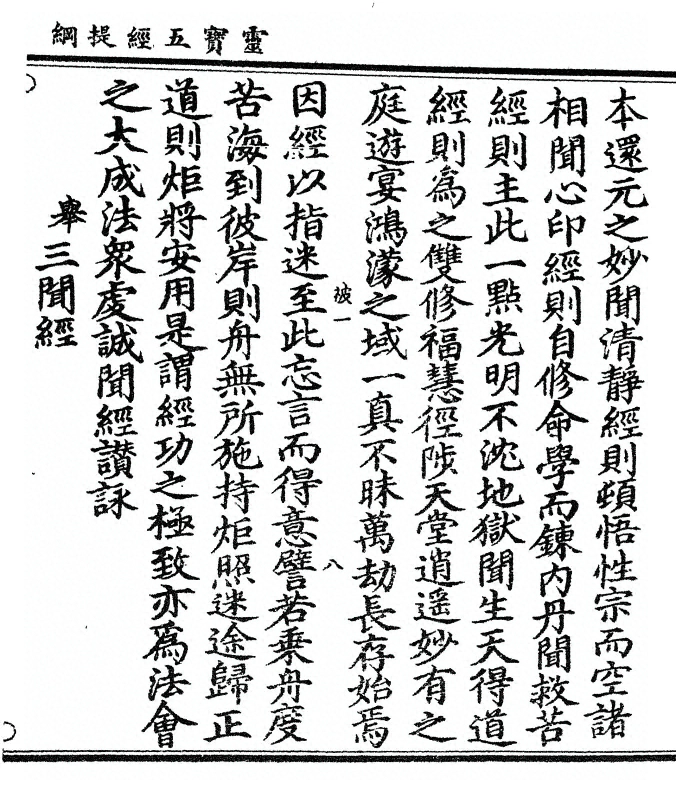 靈寶五經提綱
本還元之妙聞清靜經則頓悟性宗而空諸
相聞心印經則自修命學而鍊內丹聞救苦
經則主此一點光明不沈地獄聞生天得道
經則為之雙修福慧徑陟天堂逍遥妙有之
庭遊宴鴻濛之域一真不昧萬劫長存始焉
坡一
八
因經以指迷至此忘言而得意譬若乗舟度
苦海到彼岸則舟無所施持炬照迷途歸正
道則炬將安用是謂經功之極致亦爲法會
之大成法衆虔誠聞經讃詠
舉三聞經